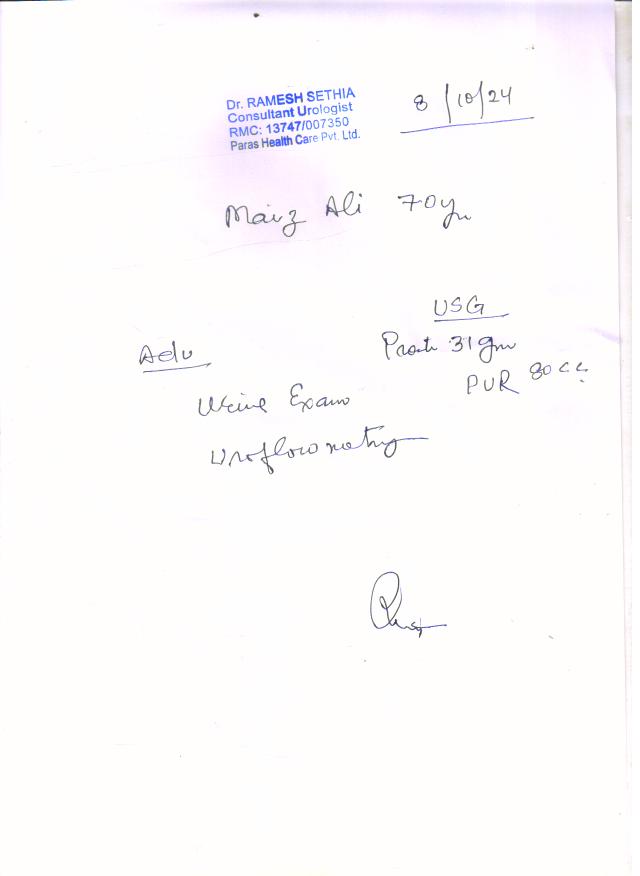 Dr. RAMESH SETHIA
Consultant Urologist
RMC: 13747/007350
Paras Health Care Pvt. Ltd.
8/10/24
Maiz Ali 70yr
USG
Prost 31 gm
PVR 80 cc
Adv
Urine Exam
Uroflowmetry